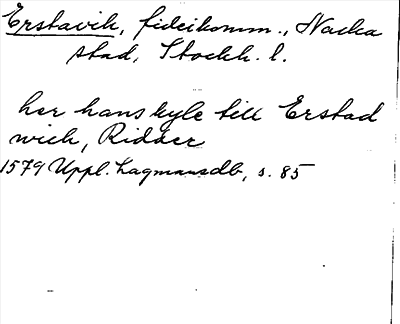 Erstavik, fideikomm., Nacka
stad, Stockh. l.
her hans kyle till Erstad
wich, Ridder
1579 Uppl. Lagmansdb, s. 85